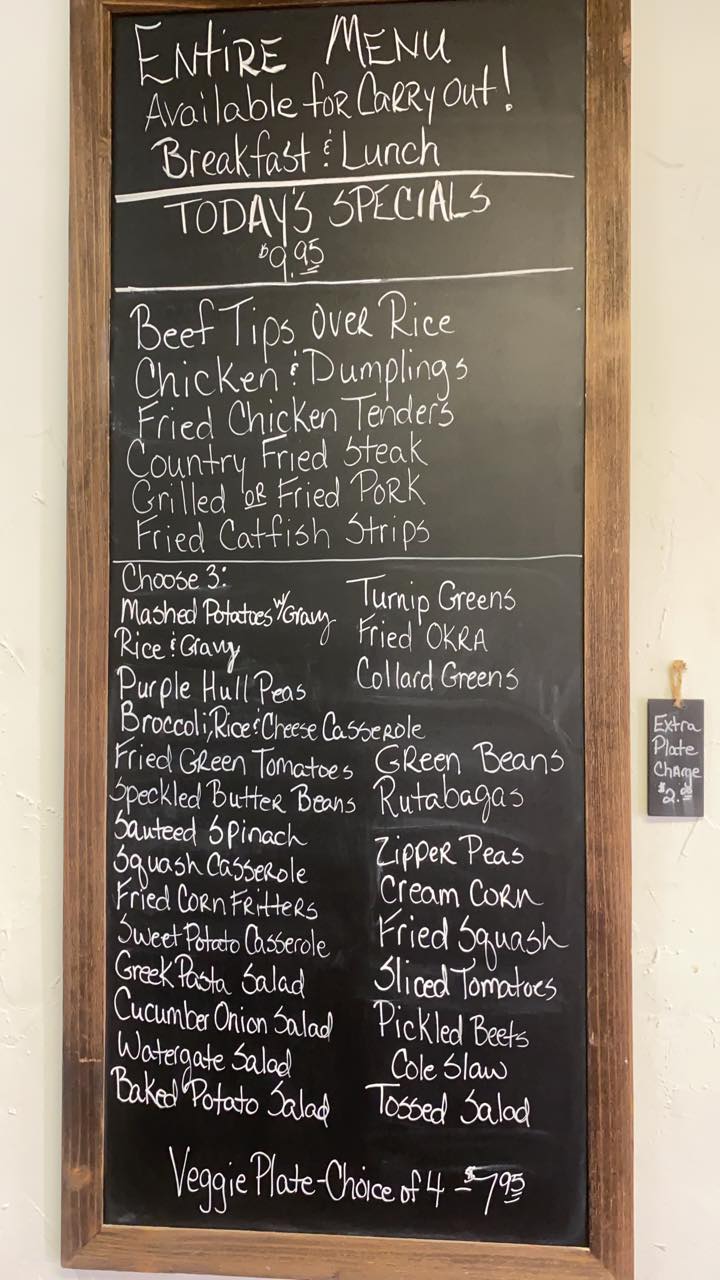 ENTIRE MENU
Available for Carry Out!
Breakfast & Lunch
TODAY'S SPECIALS
$9.95
Beef Tips Over Rice
Chicken & Dumplings
Fried Chicken Tenders
Country Fried Steak
Grilled OR Fried PORK
Fried Catfish Strips
Choose 3:
Mashed Potatoes w/Gravy
Rice & Gravy
Purple Hull Peas
Broccoli, Rice & Cheese Casserole
Fried Green Tomatoes
Speckled Butter Beans
Sauteed Spinach
Squash Casserole
Fried Corn Fritters
Sweet Potato Casserole
Greek Pasta Salad
Cucumber Onion Salad
Watergate Salad
Baked Potato Salad
Turnip Greens
Fried OKRA
Collard Greens
Green Beans
Rutabagas
Zipper Peas
Cream Corn
Fried Squash
Sliced Tomatoes
Pickled Beets
Cole Slaw
Tossed Salad
Veggie Plate-Choice of 4 - $7.95
Extra
Plate
Charge
$2.00